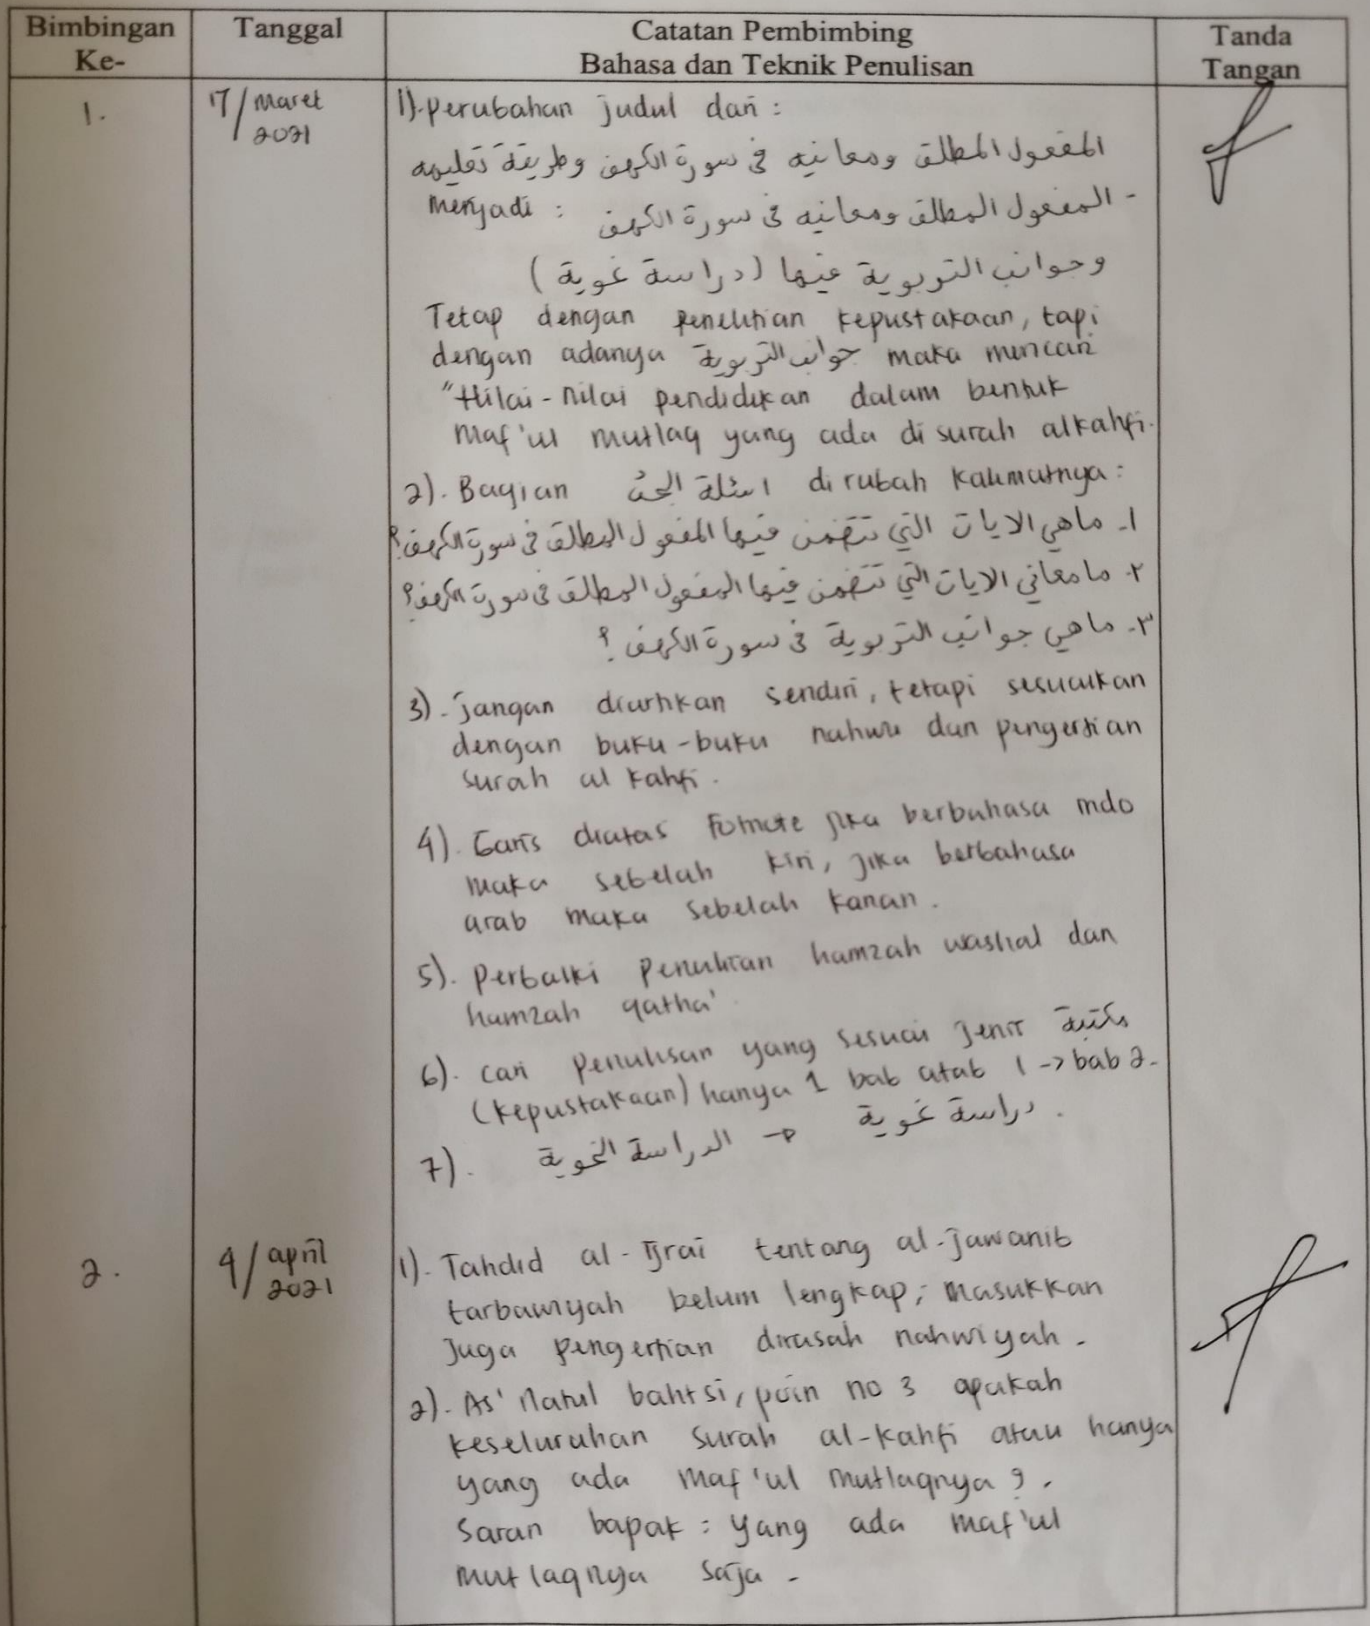 Bimbingan Ke-
Tanggal
Catatan Pembimbing
Bahasa dan Teknik Penulisan
Tanda Tangan
1.
17/Maret 2021
1). perubahan judul dari :
المفعول المطلق ومعانيه في سورة الكهف وطريقة تعليمه
menjadi : المفعول المطلق ومعانيه في سورة الكهف -
وجوانب التربوية فيها (دراسة نحوية)
Tetap dengan penelitian kepustakaan, tapi
dengan adanya جوانب التربوية maka mencari
"Nilai-nilai pendidikan dalam bentuk
maf'ul mutlaq yang ada di surah alkahfi.
2). Bagian اسئلة البحث dirubah kalimatnya :
١- ماهي الايات التي تتضمن فيها المفعول المطلق في سورة الكهف؟
٢- ما معاني الايات التي تتضمن فيها المفعول المطلق في سورة الكهف؟
٣- ماهي جوانب التربوية في سورة الكهف ؟
3). jangan diartikan sendiri, tetapi sesuaikan
dengan buku-buku nahwu dan pengertian
surah al kahfi.
4). Garis diatas Fotnote jika berbahasa indo
maka sebelah kiri, jika berbahasa
arab maka sebelah kanan.
5). Perbaiki penulisan hamzah washal dan
hamzah qatha'
6). cari penulisan yang sesuai jenis مكتبية
(kepustakaan) hanya 1 bab atab 1 -> bab 2.
7). دراسة نحوية → الدراسة النحوية.
2.
4/april 2021
1). Tahdid al-Ijrai tentang al-jawanib
tarbawiyah belum lengkap; masukkan
juga pengertian dirasah nahwiyah.
2). As'ilatul bahtsi, poin no 3 apakah
keseluruhan surah al-kahfi atau hanya
yang ada maf'ul mutlaqnya ?.
Saran bapak : yang ada maf'ul
mutlaqnya saja.